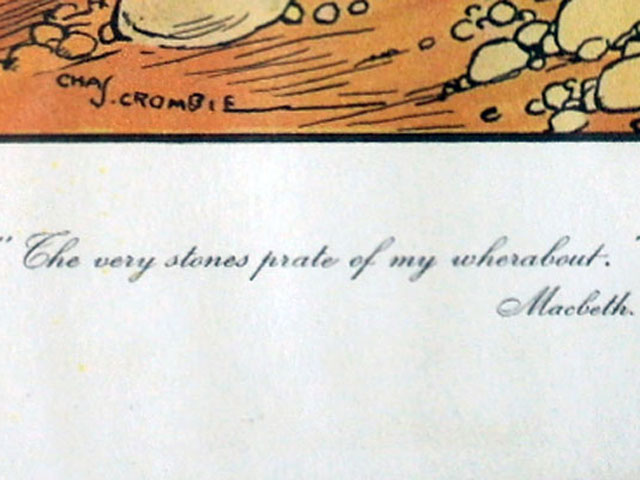 CHAS
.CROMBIE
"The very stones prate of my wherabout."
Macbeth.